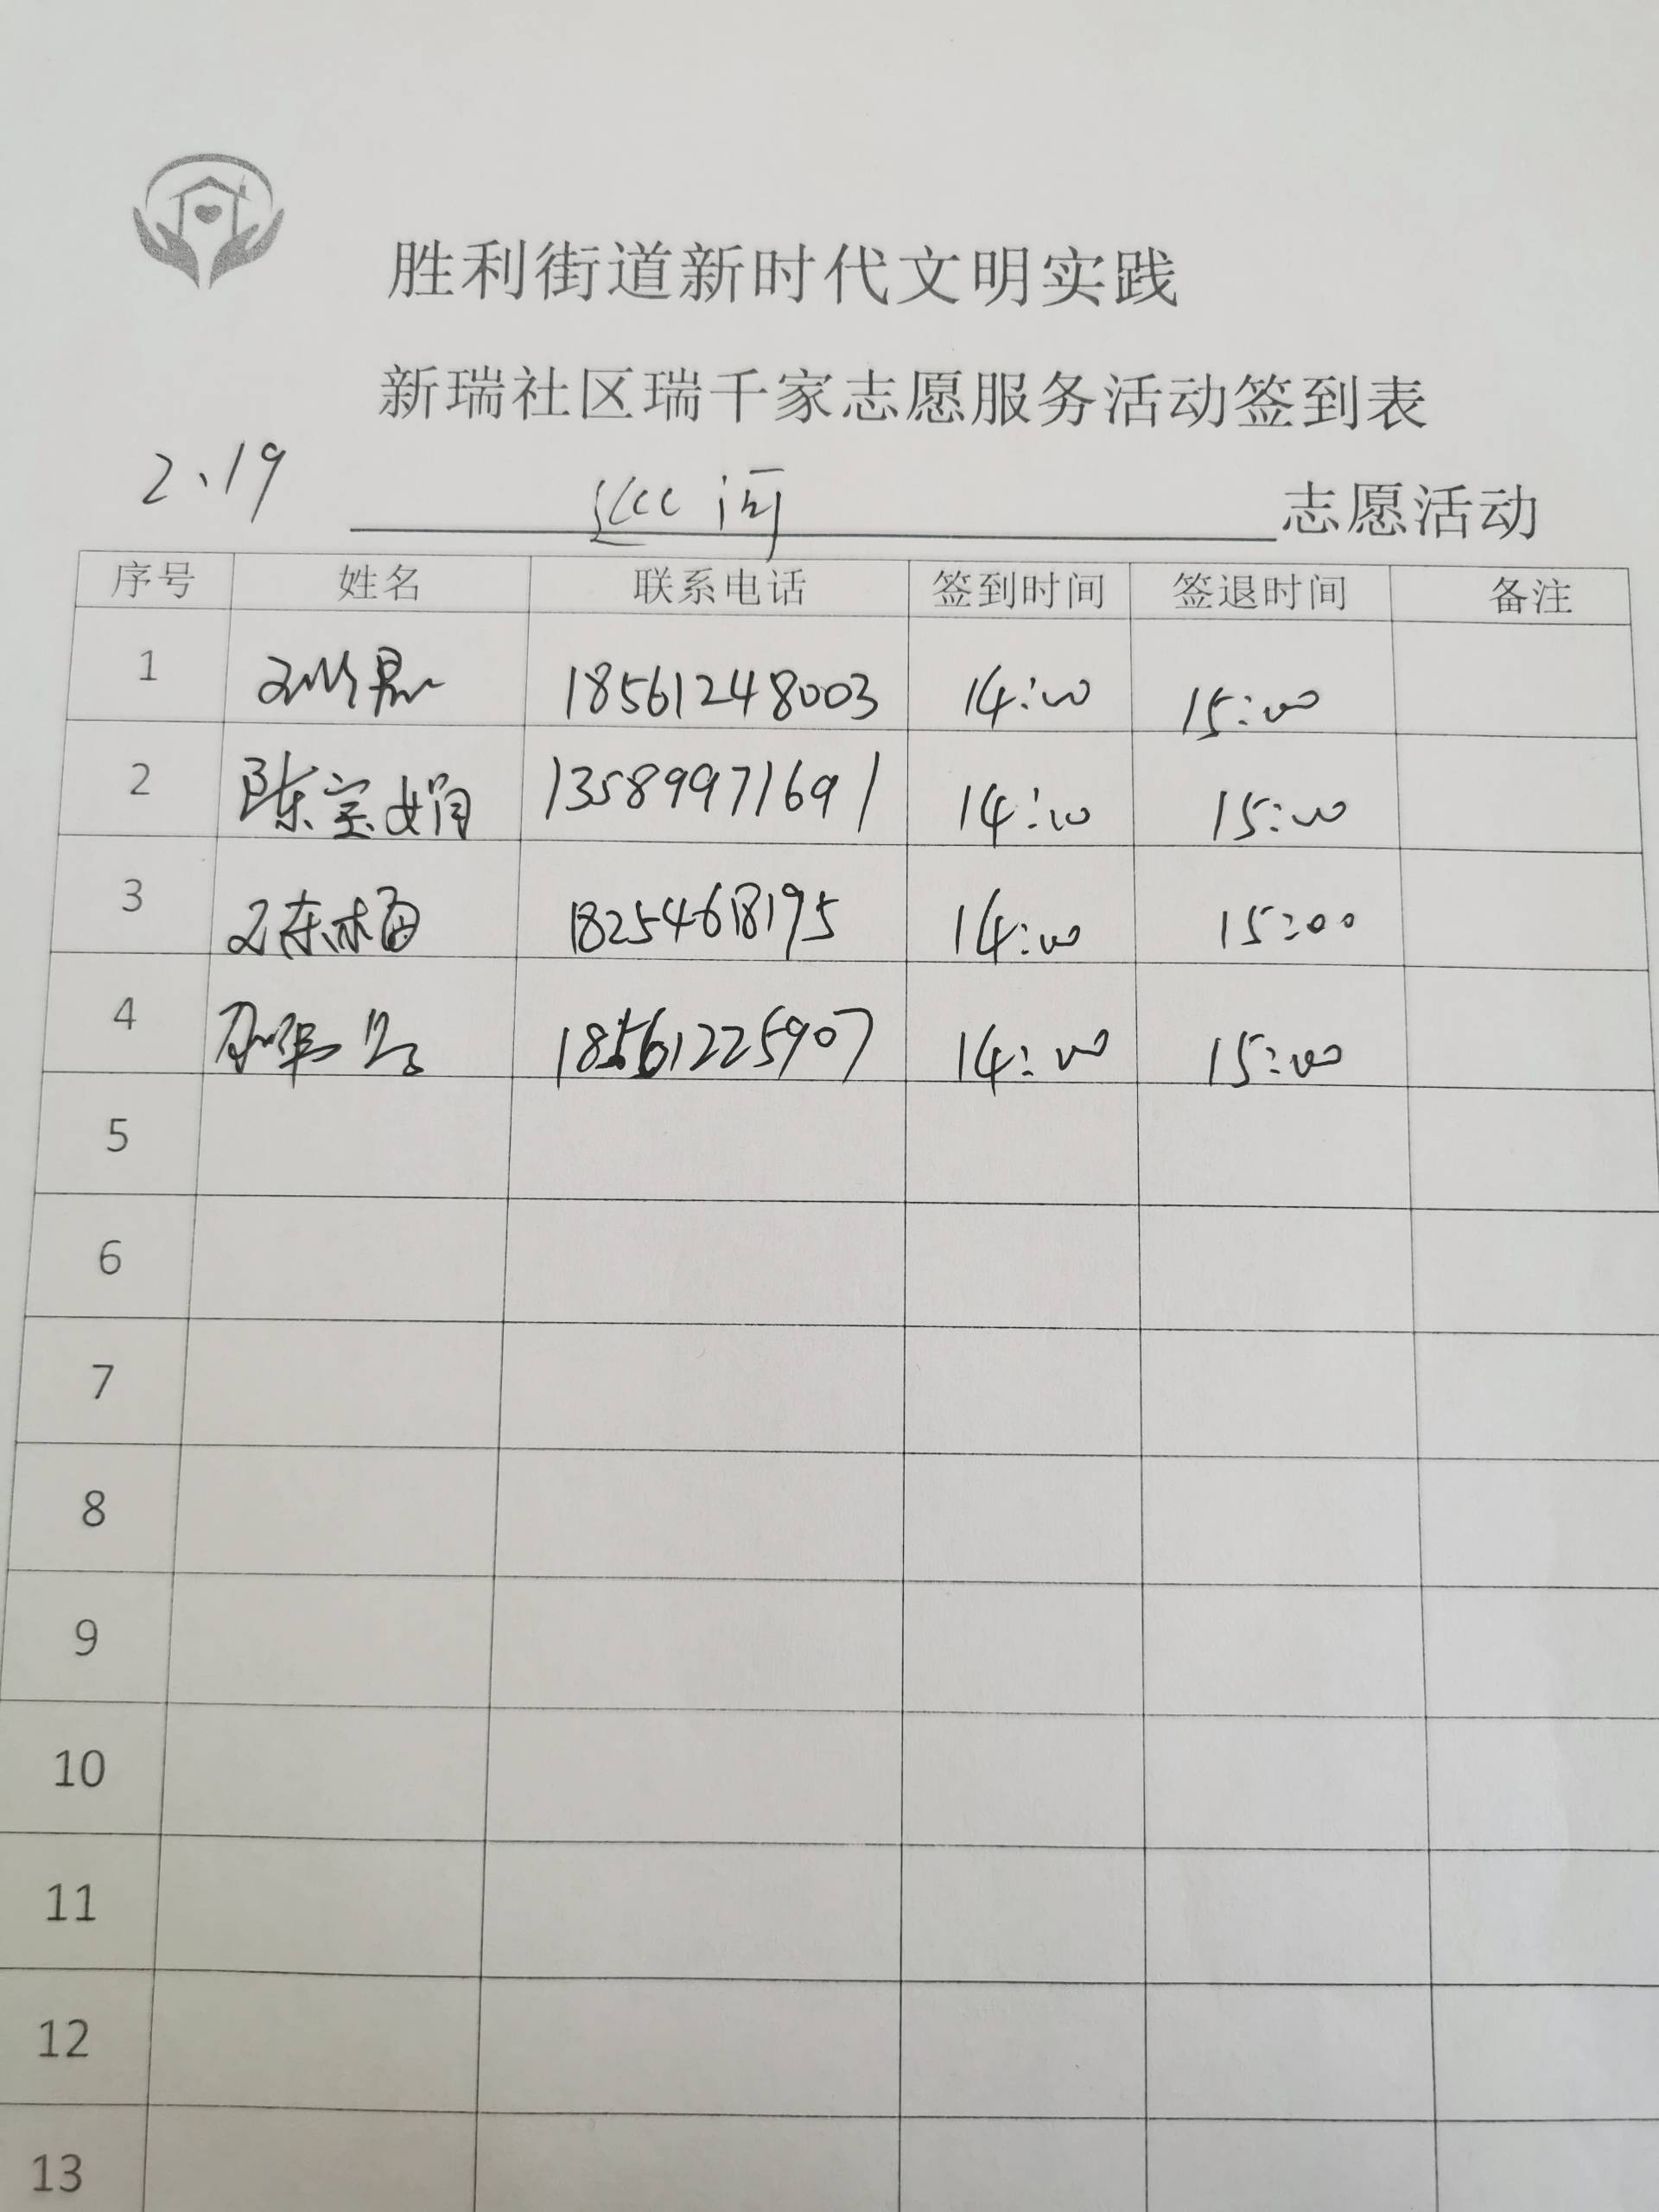 胜利街道新时代文明实践
新瑞社区瑞千家志愿服务活动签到表
2、19 巡河 志愿活动
序号 姓名 联系电话 签到时间 签退时间 备注
1 18561248003 14:00 15:00
2 陈宝娟 13589971691 14:00 15:00
3 18254618195 14:00 15:00
4 18561225907 14:00 15:00
5
6
7
8
9
10
11
12
13